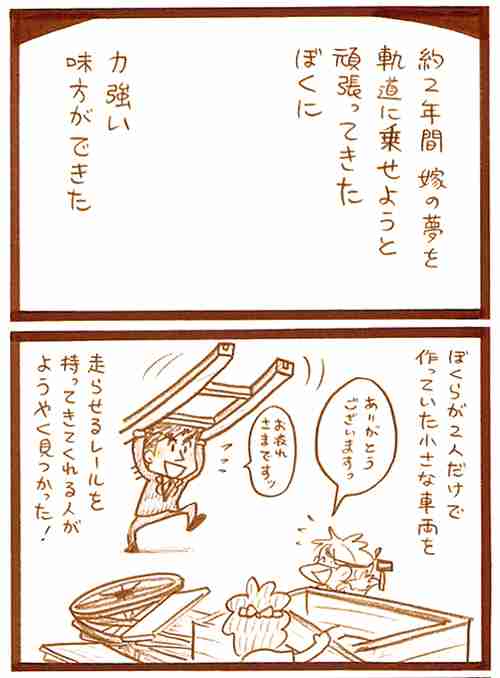 約2年間 嫁の夢を
軌道に乗せようと
頑張ってきた
ぼくに
力強い
味方ができた
ぼくらが2人だけで
作っていた小さな車両を
ありがとう
ございますっ
お疲れ
さまですッ
走らせるレールを
持ってきてくれる人が
ようやく見つかった!